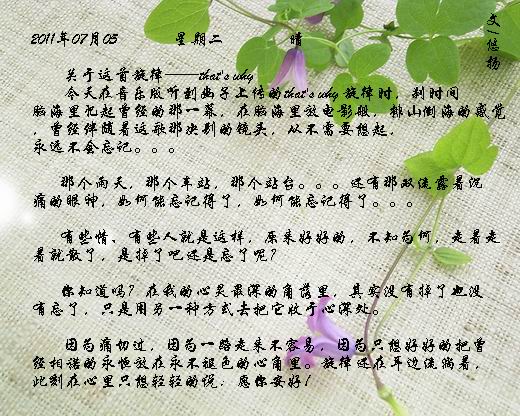 2011年07月03 星期二 晴
文/悠扬
关于这首旋律——that's why
今天在音乐版听到幽子上传的that's why 旋律时，刹时间
脑海里忆起曾经的那一幕，在脑海里放电影般，排山倒海的感觉
，曾经伴随着这歌那决别的镜头，从不需要想起，
永远不会忘记。。。
那个雨天，那个车站，那个站台。。。还有那双流露着沉
痛的眼神，如何能忘记得了，如何能忘记得了。。。
有些情、有些人就是这样，原来好好的，不知为何，走着走
着就散了，是掉了吧还是忘了呢？
你知道吗？在我的心灵最深的角落里，其实没有掉了也没
有忘了，只是用另一种方式去把它收于心深处。
因为痛切过，因为一路走来不容易，因为只想好好的把曾
经相诺的永恒放在永不褪色的心角里。旋律还在耳边流淌着，
此刻在心里只想轻轻的说，愿你安好！